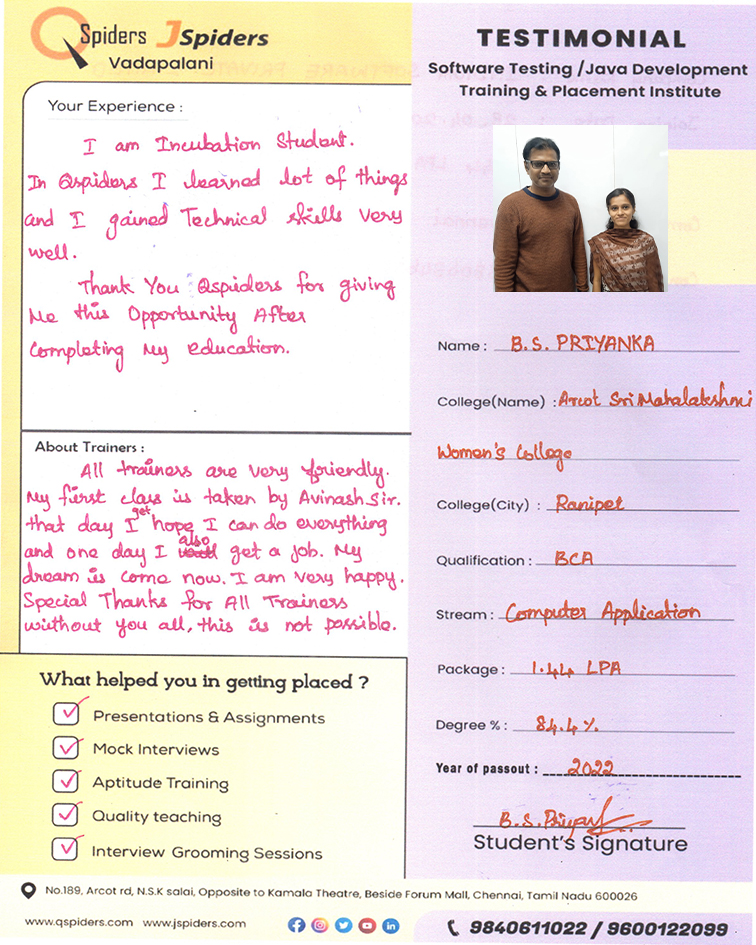 QSpiders JSpiders
Vadapalani
Your Experience :
I am Incubation Student.
In Qspiders I learned lot of things
and I gained Technical skills very
well.
Thank You Qspiders for giving
Me this Opportunity After
Completing My education.
About Trainers :
All trainers are very friendly.
My first class is taken by Avinash Sir.
that day I get hope I can do everything
and one day I also get a job. My
dream is come now. I am very happy.
Special Thanks for All Trainers
without you all, this is not possible.
What helped you in getting placed ?
Presentations & Assignments
Mock Interviews
Aptitude Training
Quality teaching
Interview Grooming Sessions
TESTIMONIAL
Software Testing /Java Development
Training & Placement Institute
Name : B.S. PRIYANKA
College(Name) : Arcot Sri Mahalakshmi
Women's College
College(City) : Ranipet
Qualification : BCA
Stream : Computer Application
Package : 1.44 LPA
Degree % : 84.4 %
Year of passout : 2022
B.S. Priyan
Student's Signature
No.189, Arcot rd, N.S.K salai, Opposite to Kamala Theatre, Beside Forum Mall, Chennai, Tamil Nadu 600026
www.qspiders.com www.jspiders.com
9840611022 / 9600122099